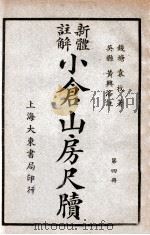 錢塘 袁枚 著
吳縣 黃興洛 註
新體註解
小倉山房尺牘
第四冊
上海大東書局印行